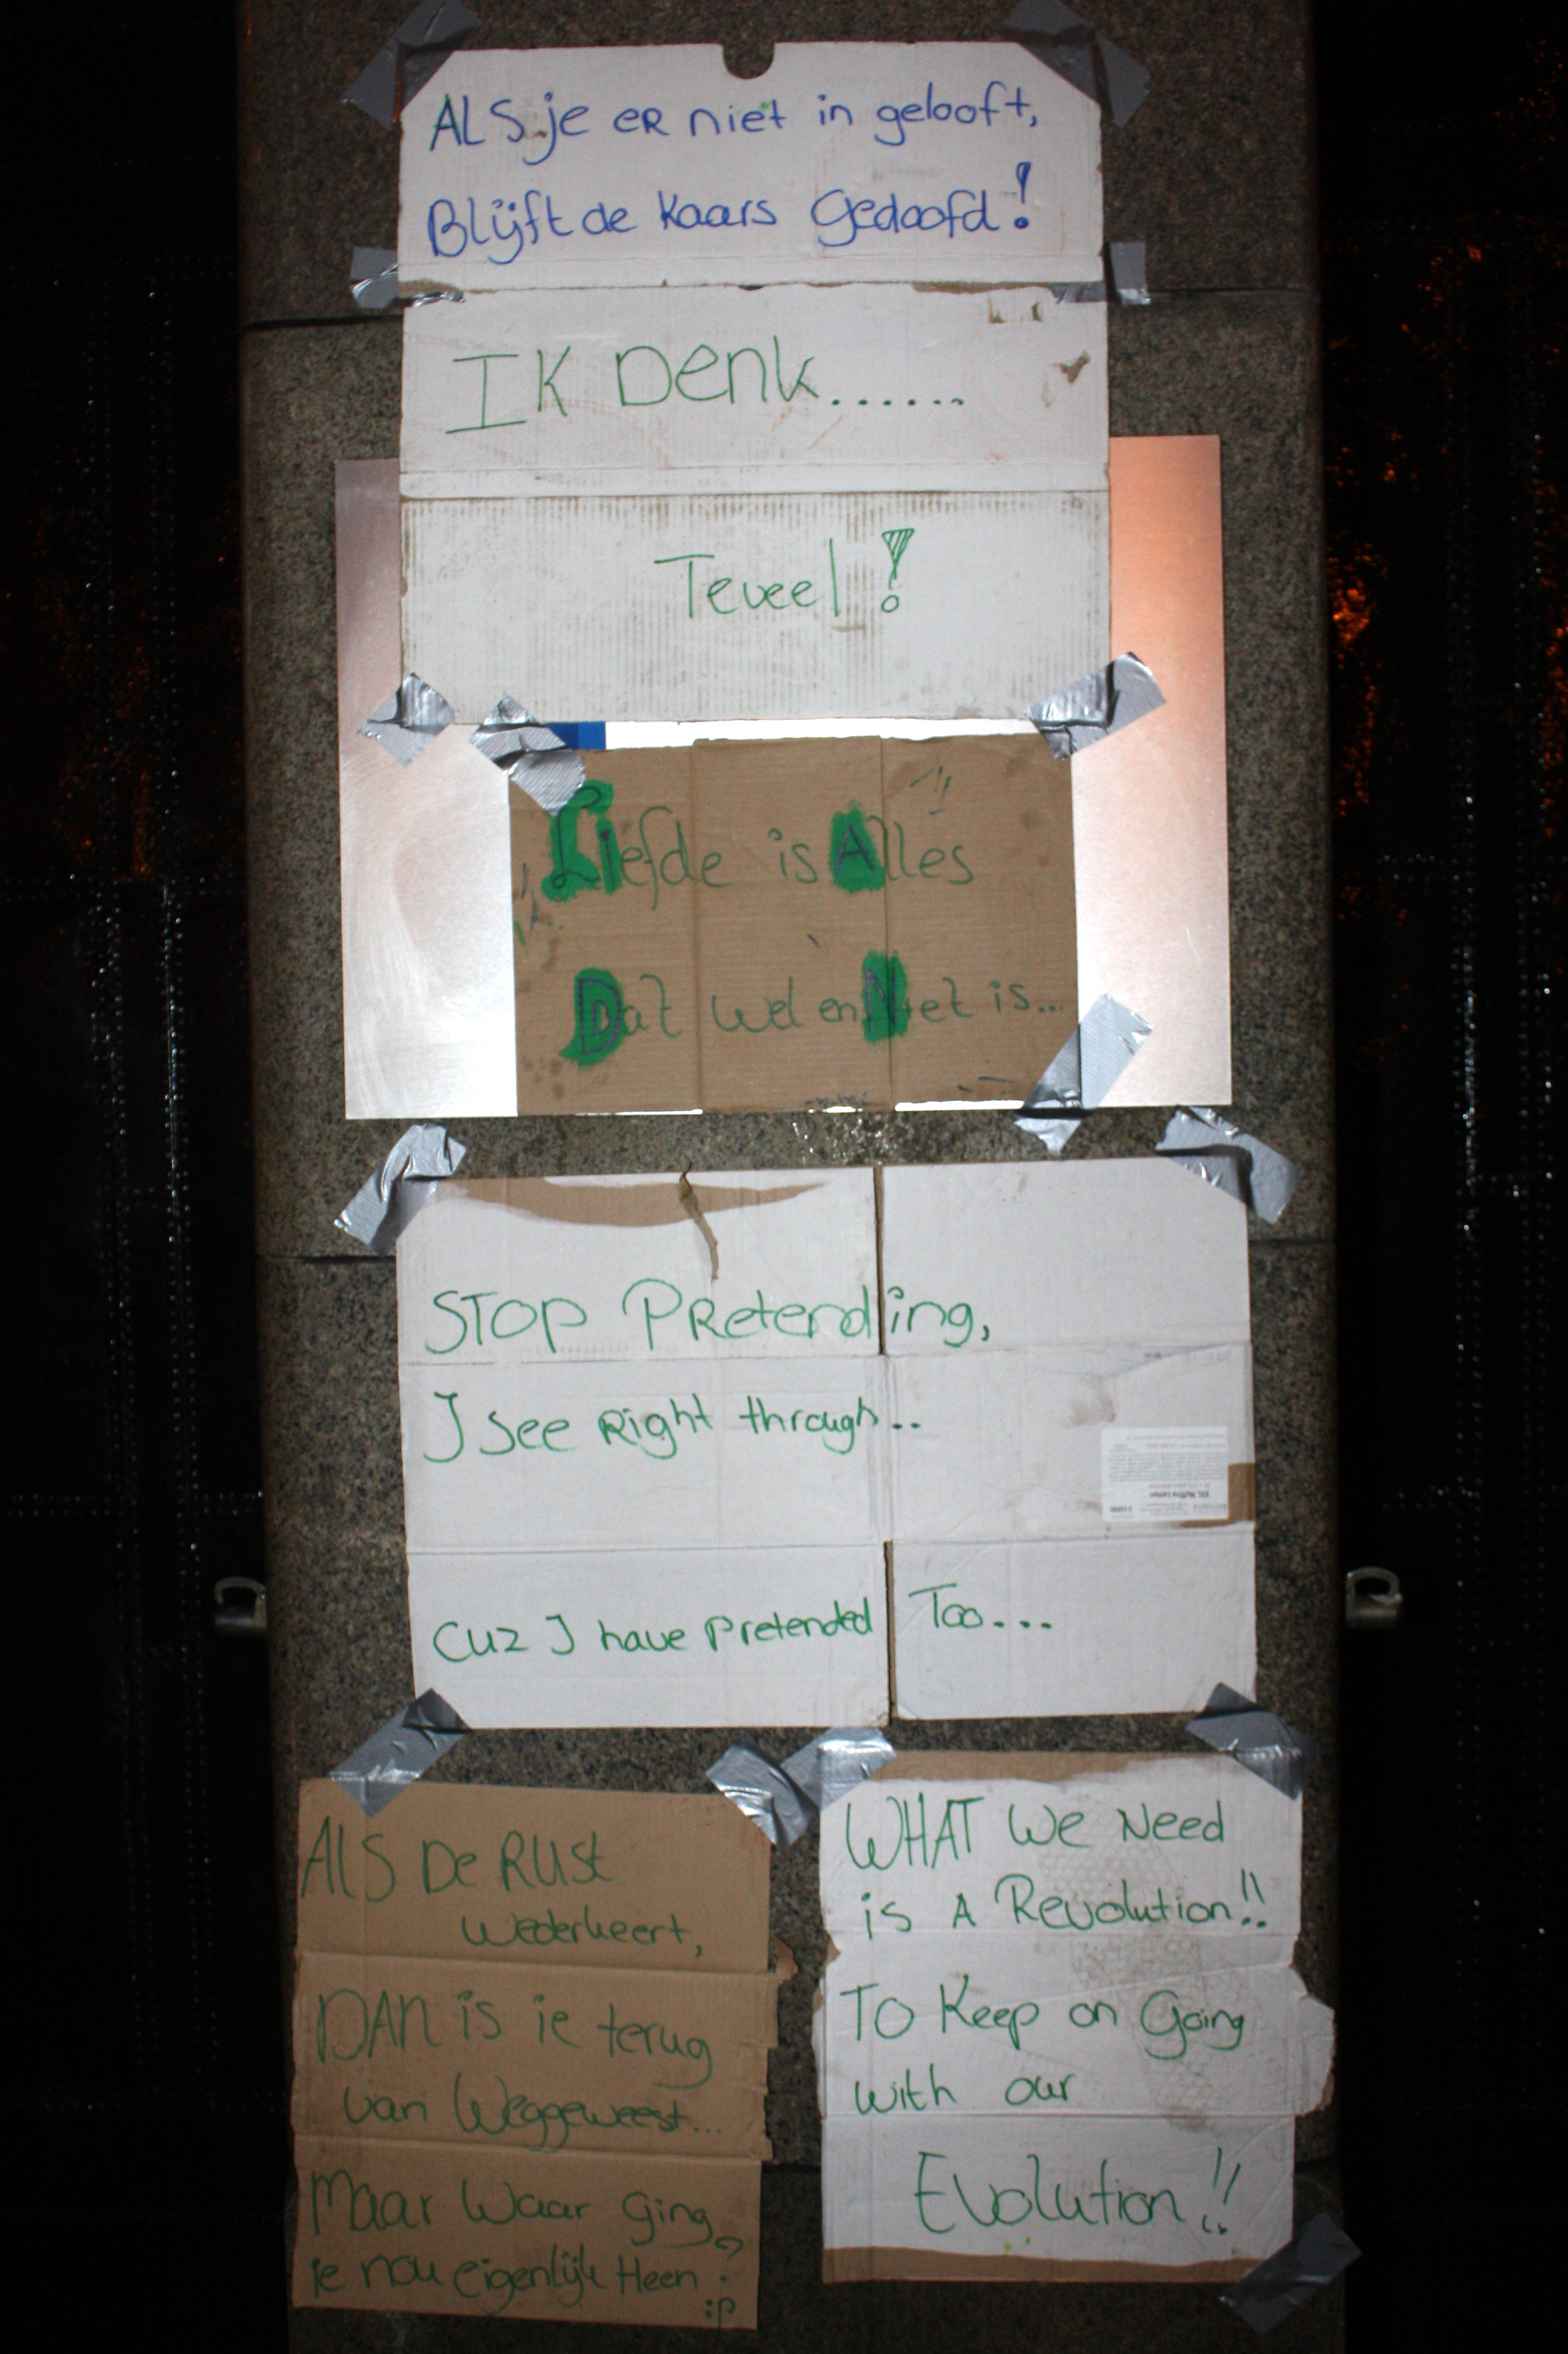 ALS je eR niet in gelooft,
Blijft de kaars Gedoofd!
IK Denk......
Teveel!
Liefde is Alles
Dat wel en Niet is...
STOP PRetending,
I See Right through..
XXL Muffins Lemon
CUZ I have Pretended Too....
ALS De RUSt
Wederkeert,
DAN is ie terug
van Weggeweest...
Maar Waar Ging
ie nou eigenlijk Heen?
:P
WHAT We Need
is A Revolution!!
TO Keep on Going
With our
Evolution!!